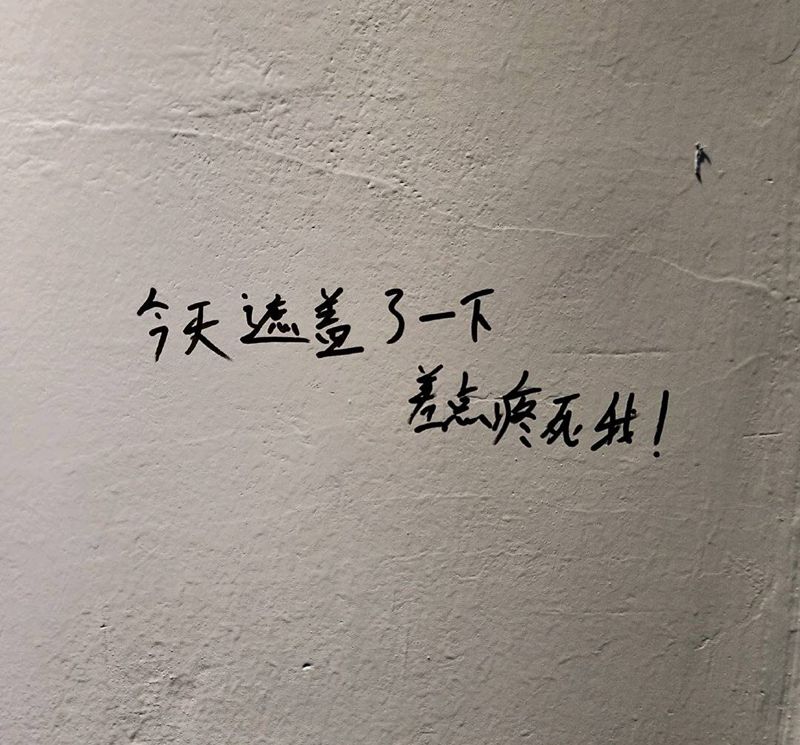 今天遮盖了一下
差点疼死我!